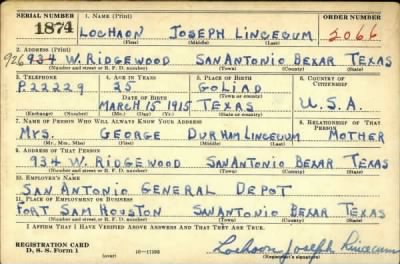 SERIAL NUMBER 1. NAME (Print) ORDER NUMBER
1874 LOCHAON JOSEPH LINCECUM 2066
(First) (Middle) (Last)
2. ADDRESS (Print)
926 934 W. RIDGEWOOD SAN ANTONIO BEXAR TEXAS
(Number and street or R. F. D. number) (Town) (County) (State)
3. TELEPHONE 4. AGE IN YEARS 5. PLACE OF BIRTH 6. COUNTRY OF CITIZENSHIP
P.22229 25 GOLIAD
DATE OF BIRTH (Town or county)
MARCH 15 1915 TEXAS U.S.A.
(Exchange) (Number) (Mo.) (Day) (Yr.) (State or country)
7. NAME OF PERSON WHO WILL ALWAYS KNOW YOUR ADDRESS 8. RELATIONSHIP OF THAT PERSON
MRS. GEORGE DURHAM LINCECUM MOTHER
(Mr., Mrs., Miss) (First) (Middle) (Last)
9. ADDRESS OF THAT PERSON
934 W. RIDGEWOOD SAN ANTONIO BEXAR TEXAS
(Number and street or R. F. D. number) (Town) (County) (State)
10. EMPLOYER'S NAME
SAN ANTONIO GENERAL DEPOT
11. PLACE OF EMPLOYMENT OR BUSINESS
FORT SAM HOUSTON SAN ANTONIO BEXAR TEXAS
(Number and street or R. F. D. number) (Town) (County) (State)
I AFFIRM THAT I HAVE VERIFIED ABOVE ANSWERS AND THAT THEY ARE TRUE.
REGISTRATION CARD
D. S. S. Form 1 (over) Lochaon Joseph Lincecum
(Registrant's signature)